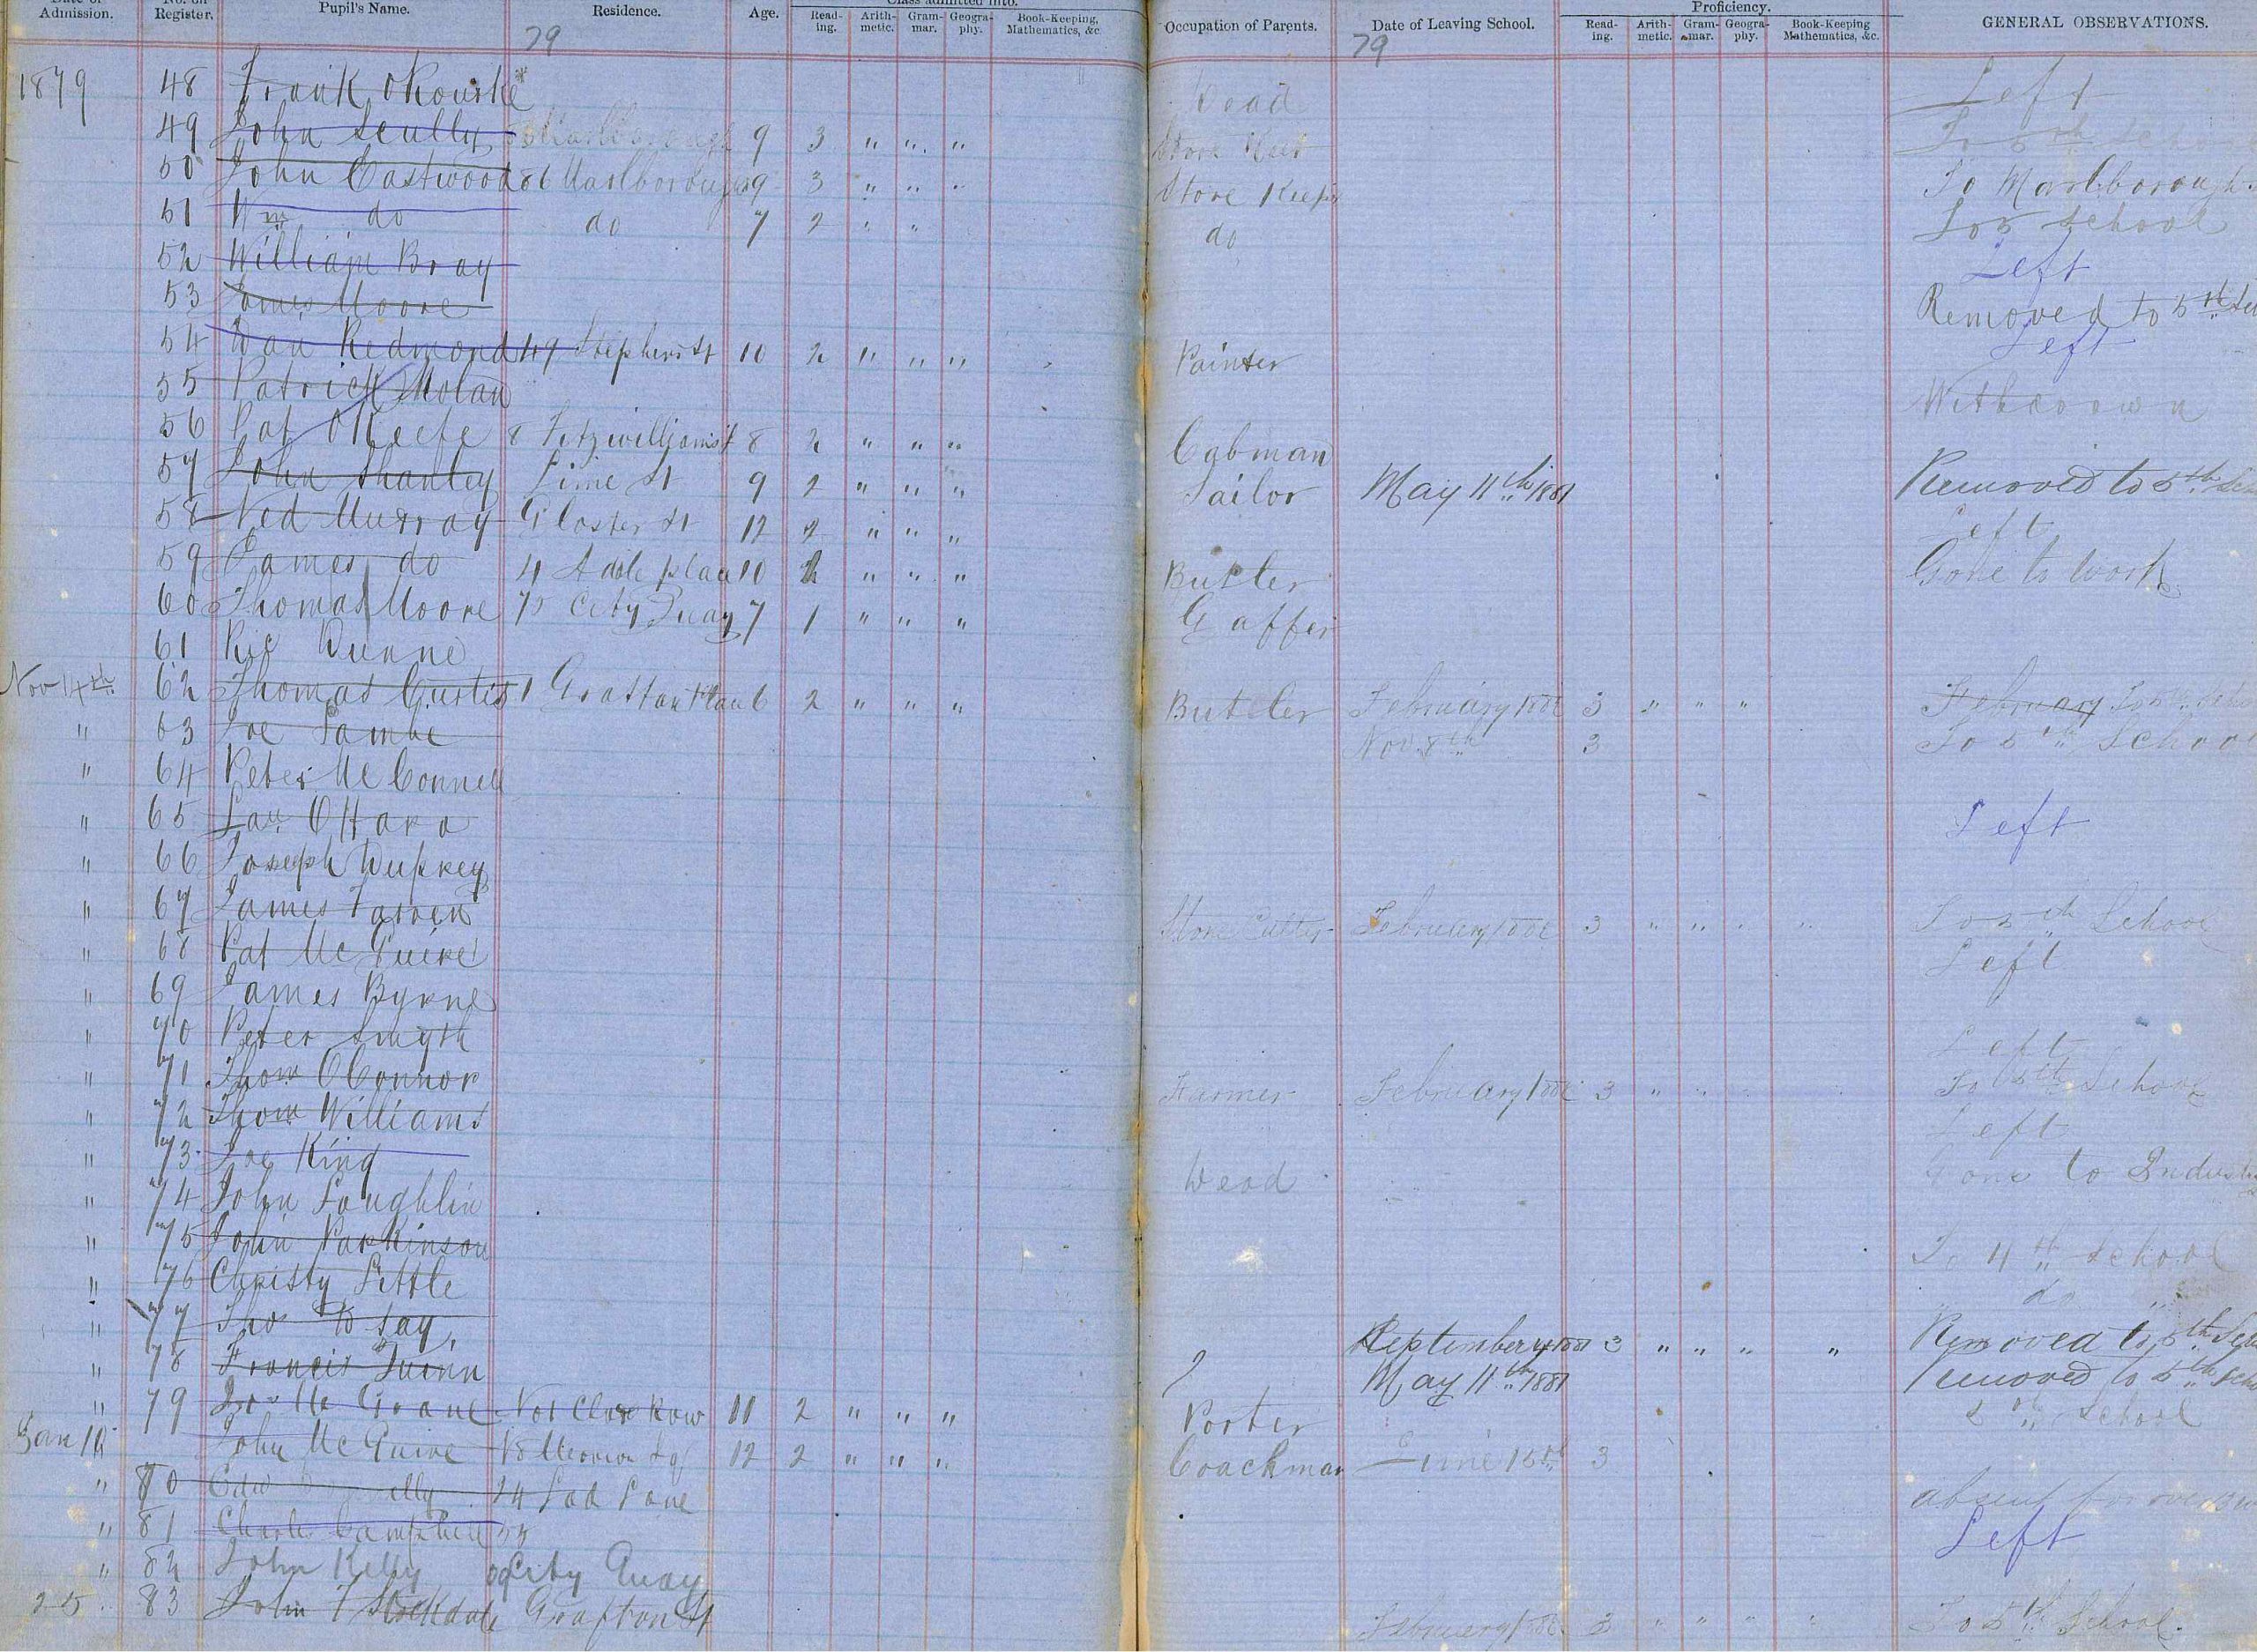 Date of Admission. No. on Register. Pupil's Name. Residence. Age. Class admitted into. Reading. Arithmetic. Grammar. Geography. Book-Keeping, Mathematics, &c. Occupation of Parents. Date of Leaving School. Proficiency. Reading. Arithmetic. Grammar. Geography. Book-Keeping Mathematics, &c. GENERAL OBSERVATIONS.
79 79
1879 48 Frank O Rourke Left
49 John Scully 9 3 " " " Store To 5th School
50 John Eastwood 86 Marlborough 9 3 " " " Store Keeper To Marlborough
51 Wm do do 7 2 " " do To 5 School
52 William Bray Left
53 James Moore Removed to 5th
54 Dan Redmond 49 Stephen St 10 2 " " " Painter Left
55 Patrick Molan Withdrawn
56 Pat O Keefe 8 Fitzwilliam St 8 2 " " " Cabman
57 John Shanley Lime St 9 2 " " " Sailor May 11th 1881 Removed to 5th
58 Ned Murray Gloster St 12 2 " " " Left
59 James do 4 place 10 2 " " " Butler Gone to work
60 Thomas Moore 75 City Quay 7 1 " " " Gaffer
61 Ric Dunne
Nov 14th 62 Thomas Curtis 1 Grattan Place 6 2 " " " Butler February 188 3 " " " February To 5th
" 63 Joe Lambe Nov. 8th 3 To 5th School
" 64 Peter Mc Connell
" 65 Lau O Hara Left
" 66 Joseph Duprey
" 67 James Farren Stone Cutter February 188 3 " " " " To 5th School
" 68 Pat Mc Guire Left
" 69 James Byrne
" 70 Peter Smyth Left
" 71 Thom O Connor Farmer February 188 3 " " To 5th School
" 72 Thom Williams Left
" 73 Joe King Dead Gone to
" 74 John Loughlin
" 75 John Parkinson To 4th School
" 76 Christy Little do "
" 77 Thos September 1881 3 " " " " Removed to 5th
" 78 Francis Quinn ? May 11th 1881 removed to 5th
" 79 Mc Grane No 1 Clare Row 11 2 " " " Porter 5th School
Jan 12 John Mc Guire 18 Merrion Sq 12 2 " " " Coachman June 15th 3
" 80 Edw 24 Lad Lane absent for over
" 81 Charles Campbell Left
" 82 John Kelly City Quay
25 83 John F Stockdale Grafton St February 188 3 " " " " To 5th School.